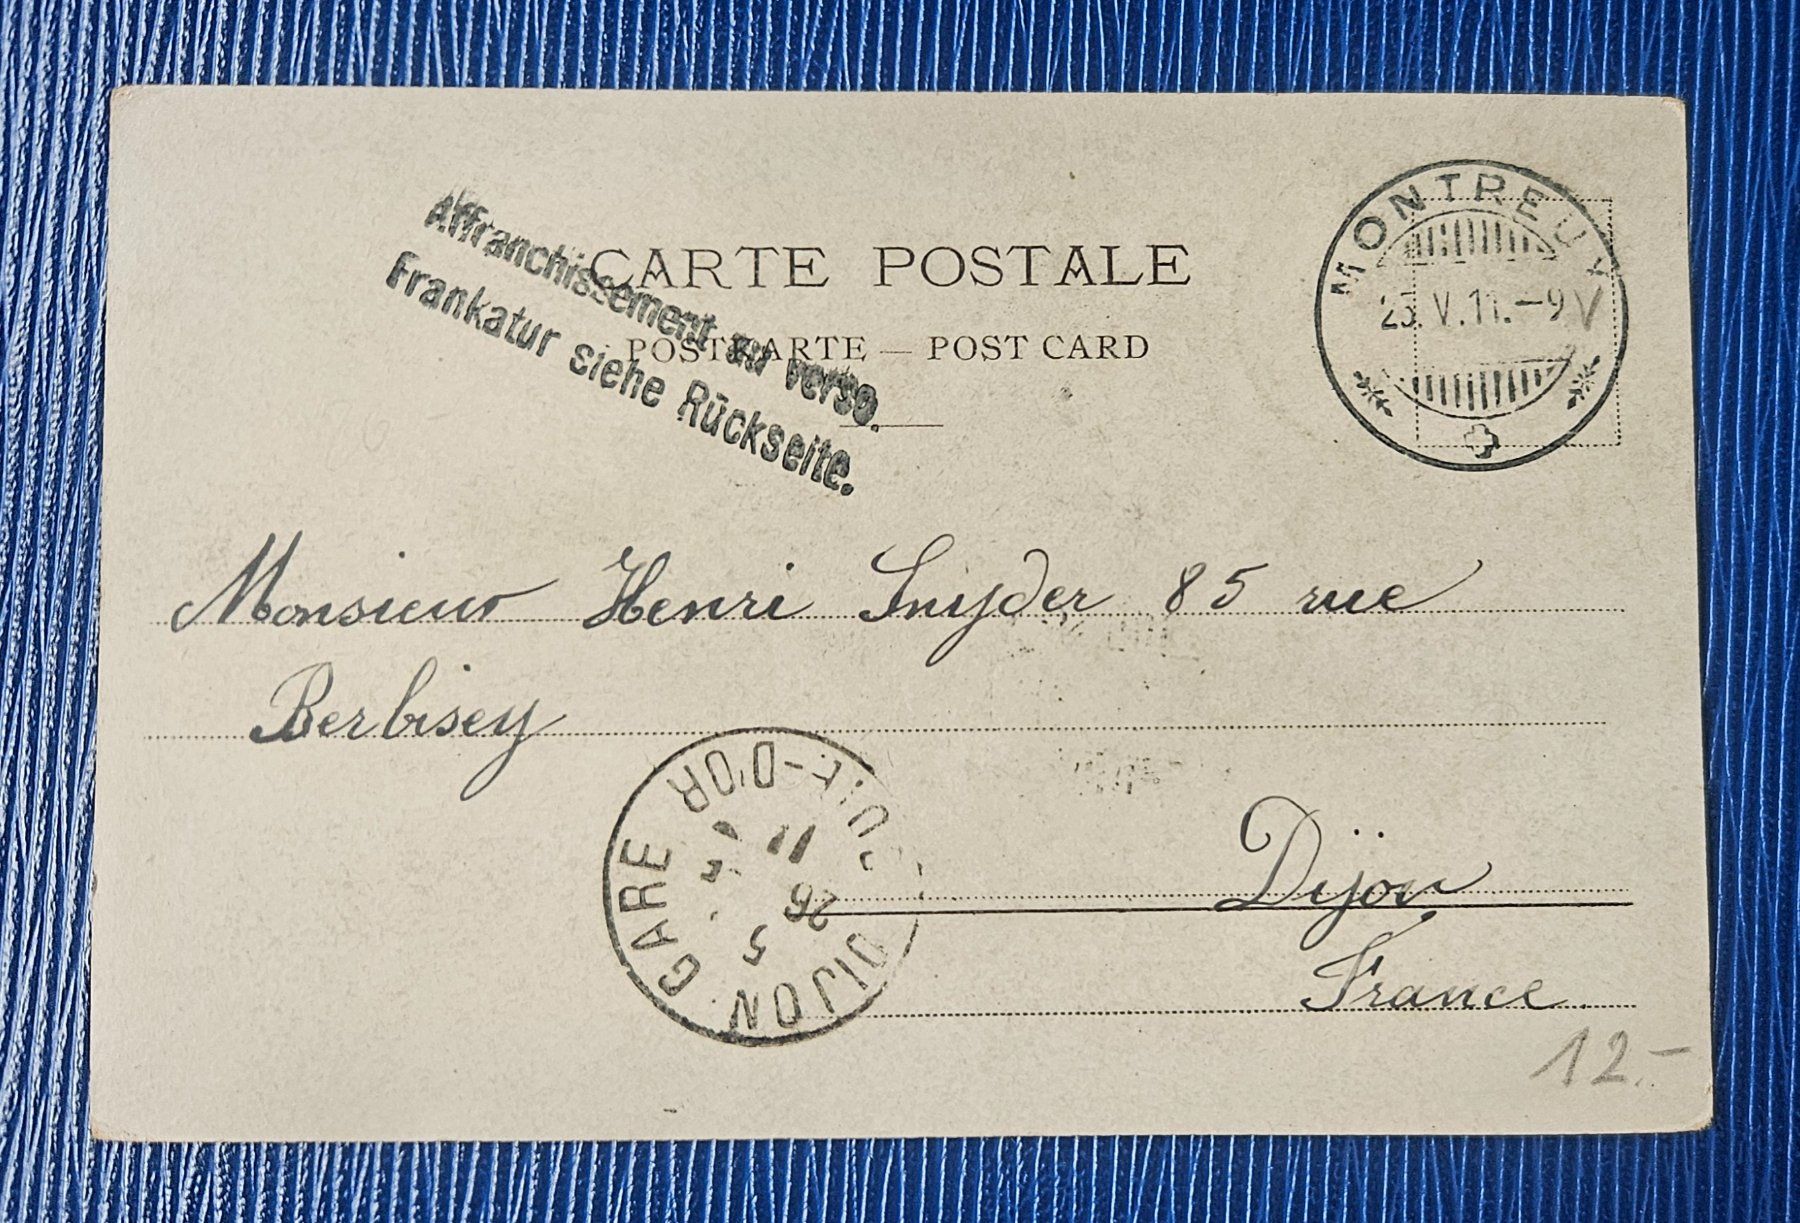 CARTE POSTALE
POSTKARTE — POST CARD
Affranchissement au verso.
Frankatur siehe Rückseite.
MONTREUX
25. V. 11. — 9 V
Monsieur Henri Snyder 85 rue
Berbisey
DIJON GARE
D'OR
11
26
5
Dijon
France.
12.-